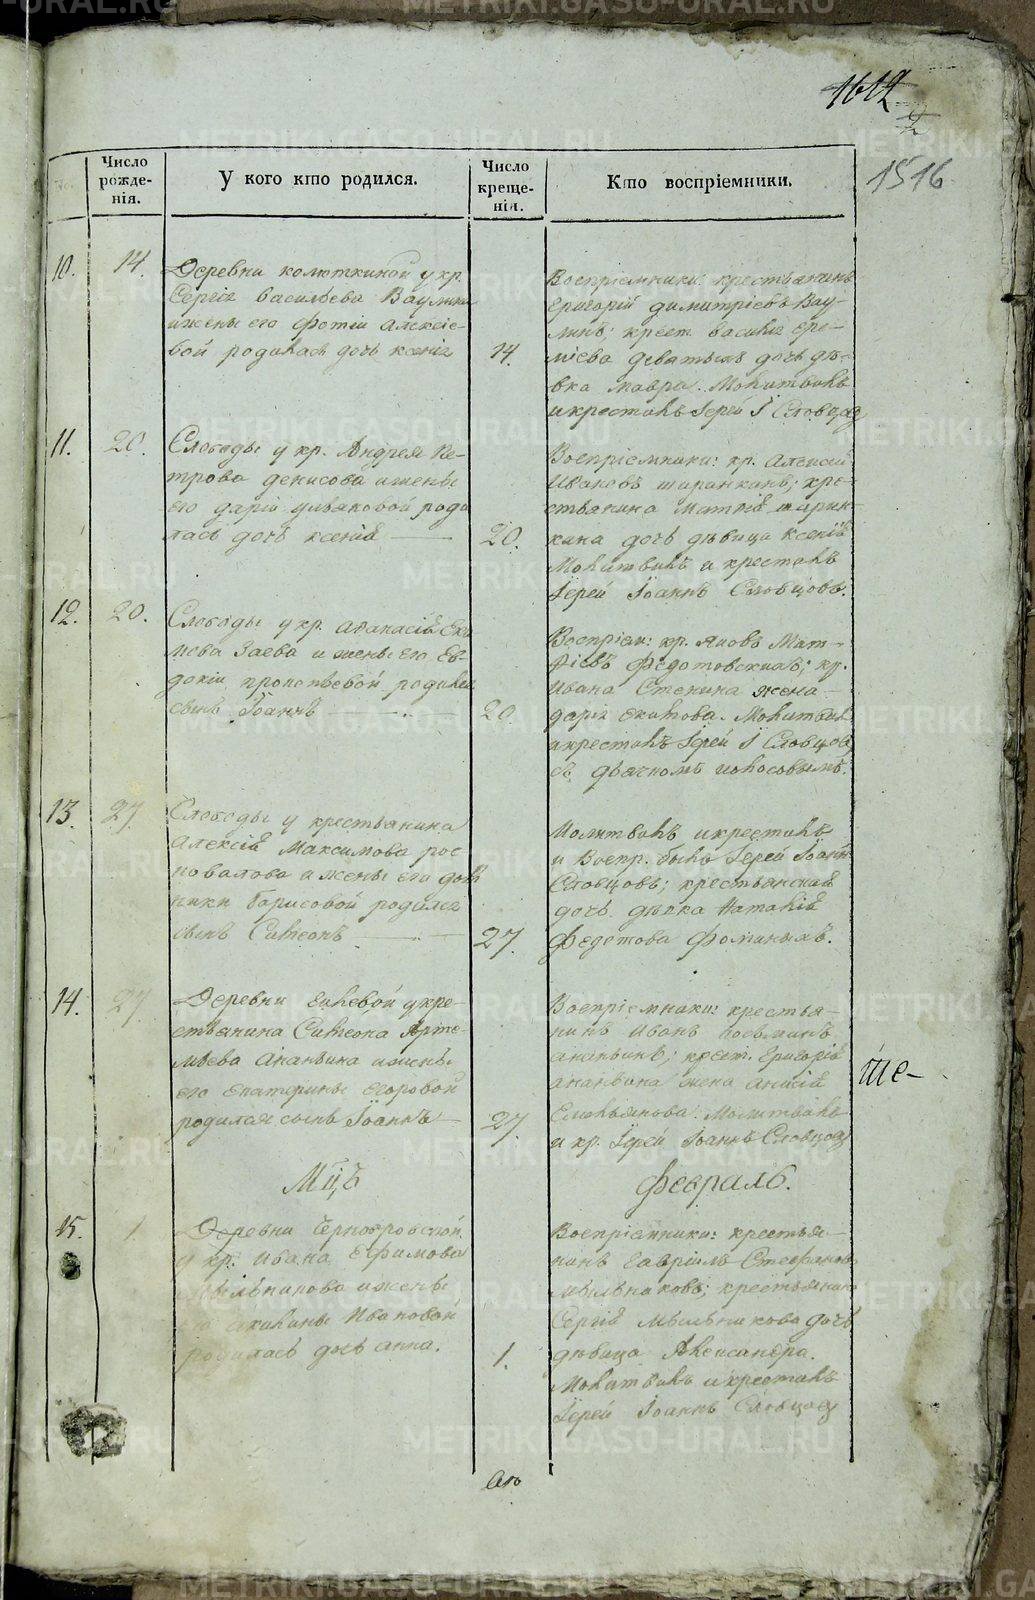 1612
2
1516
Число рожде-нія.
У кого кто родился.
Число креще-нія.
Кто воспріемники.
10. 14.
Деревни колюткиной у кр.
Сергія васильева Ваулина
ижены его Фотіи алексіе-
вой родилась дочь ксенія
14.
Воспріемники: крестьянинъ
Григорій димитріевъ Вау-
линъ; крест. васиlія ере-
міева деватыхъ дочь дѣ-
вка мавра. Молитвилъ
икрестилъ Іерей І Словцов
11. 20.
Слободы у кр. Андрея Пе-
трова денисова ижены
его даріи ульяновой роди
лась дочь ксенія
20.
Воспріемники: кр. алексій
Ивановъ ширинкинъ; кре-
стьянина Матвія ширин-
кина дочь дѣвица ксенія
Молитвилъ и крестилъ
Іерей Іоаннъ Словцовъ.
12. 20.
Слободы у кр. аѳанасія Еки
мова Заева и жены его Ев-
докіи прокопьевой родился
сынъ Іоаннъ
20.
Воспріем: кр. яковъ Мат-
ѳіевъ Федотовскихъ; кр.
Ивана Стенина жена
дарія екимова. Молитвилъ
икрестилъ Іерей І Словцов
съ дьячкомъ
13. 27.
Слободы у крестьянина
алексія Максимова рос-
повалова и жены его дом
ники борисовой родился
сынъ Симеонъ
27.
Молитвилъ икрестилъ
и Воспр. былъ Іерей Іоанн
Словцовъ; крестьянская
дочь дѣвка Наталія
Федотова Фоминыхъ.
14. 27.
Деревни укре-
стьянина Симеона Арте-
мьева Ананьина ижены
его екатерины егоровой
родился сынъ Іоаннъ
27.
Воспріемники: крестья-
нинъ Иванъ
ананьинъ; крест. Григорія
ананьина жена анисія
Емельянова. Молитвилъ
и кр. Іерей Іоаннъ Словцов
Ше-
Мцъ Февраль.
15. 1
Деревни Чернояровской
у кр. ивана Ефимова
Мыльникова ижены
его акилины Ивановой
родилась дочь анна.
1.
Воспріемники: крестья-
нинъ гавріилъ Стефановъ
мыльниковъ; крестьянина
Сергія мыльникова дочь
дѣвица Александра.
Молитвилъ икрестилъ
Іерей Іоаннъ Словцов
METRIKI.GASO-URAL.RU